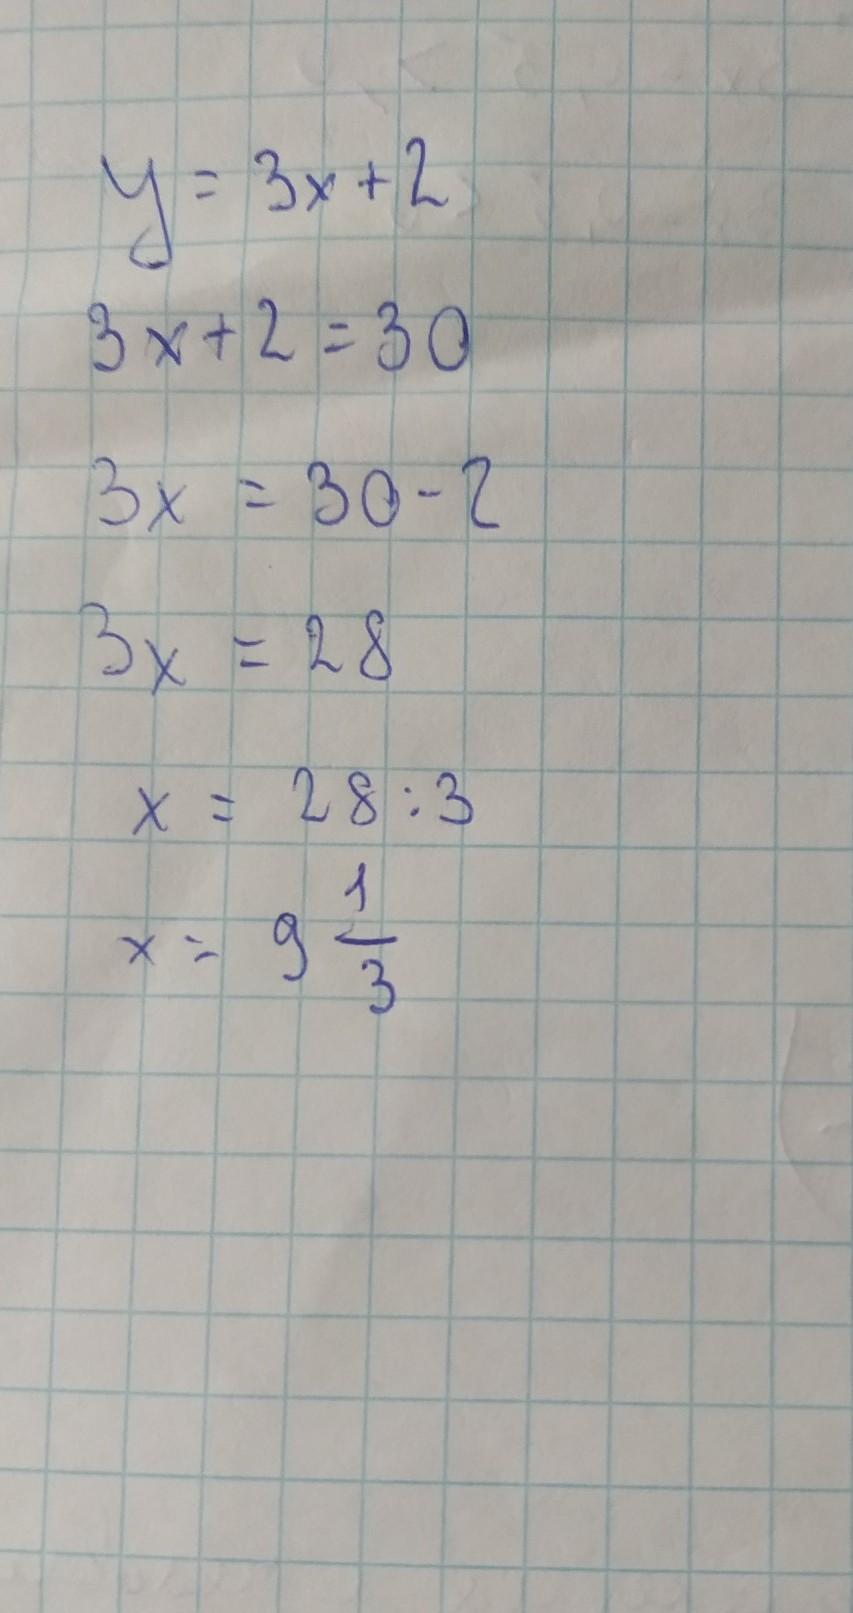 y = 3x + 2
3x + 2 = 30
3x = 30 - 2
3x = 28
x = 28 : 3
x = 9 1/3